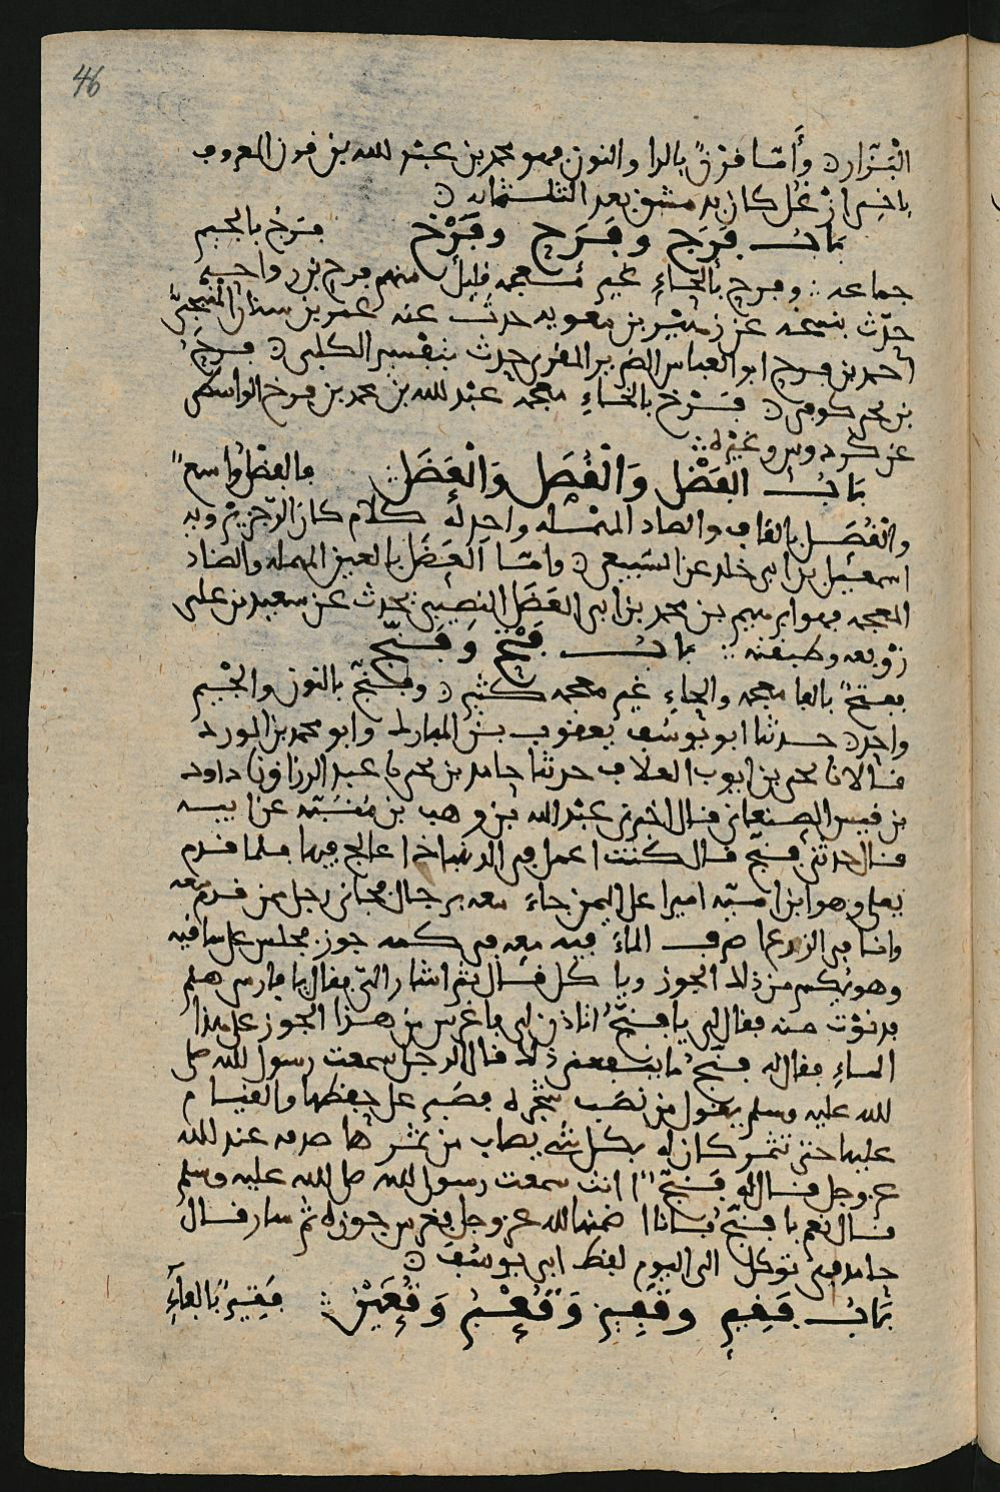 46
البزار ه وأما فزن بالرا والنون فهو محمد بن عبد الله بن فرن المعروف
باخي ارغل كان بدمشق بعد الثلثمائه ه
باب فرج وفرح وفرخ فرج بالجيم
جماعه ∴ وفرح بالحاء غير معجمه قليل منهم فرح بن رواحه
حدث بنسخه عن زهير بن معويه حدث عنه عمر بن سنان المنبجي
أحمد بن فرح ابو العباس الضرير المقرى حدث بتفسير الكلبي ه فرح
بن يحيى كوفى ه فرخ بالخاء معجمه عبد الله بن محمد بن فرخ الواسطى
عن كردوس وغيره ∴
باب الفضل والقصل والعضل فالفضل واسع
والقصل بالقاف والصاد المهمله واحد له كلام كان الرجز يروبه
اسمعيل بن ابى خلد عن السبيعى ه واما العضل بالعين المهمله والضاد
المعجمه فهو ابرهيم بن محمد بن ابى العضل النصيبى يحدث عن سعيد بن على
زوبعه وطبقته ∴ باب فتح وفنج
ففتح بالفا معجمه والحاء غير معجمه كثير ه وفنج بالنون والجيم
واحد ه حدثنا ابو يوسف يعقوب بن المبارك وابو محمد بن الورد
قالا نا يحيى بن ايوب العلاف حدثنا حامد بن يحيى نا عبد الرزاق نا داود
بن قيس الصنعانى قال اخبرنى عبد الله بن وهب بن منبه عن ابيه
قال حدثنى فنج قال كنت اعمل فى الدينباذ اعالج فيها فلما قدم
يعلى وهو ابن امية اميرا على اليمن جاء معه برجال فجانى رجل ممن قدم معه
وانا فى الزرع اصرف الماء فيه معه فى كمه جوز فجلس على ساقيه
وهو يكسر من ذلك الجوز وياكل قال ثم اشار الى فقال يا فارسى هلم
فدنوت منه فقال لى يا فنج اتاذن لى فاغرس من هذا الجوز على هذا
الماء فقال له فنج ما ينفعنى ذلك قال الرجل سمعت رسول الله صلى
الله عليه وسلم يقول من نصب شجره فصبر على حفظها والقيام
عليها حتى تثمر كان له بكل شى يصاب من ثمرها صدقه عند الله
عز وجل قال له فنج اانت سمعت رسول الله صلى الله عليه وسلم
قال نعم يا فنج فانا اضمنها لله عز وجل فغرس جوزه ثم سار قال
حامد فهى توكل الى اليوم لفظ ابى يوسف ه
باب فقيم وقعين فقيم بالفاء